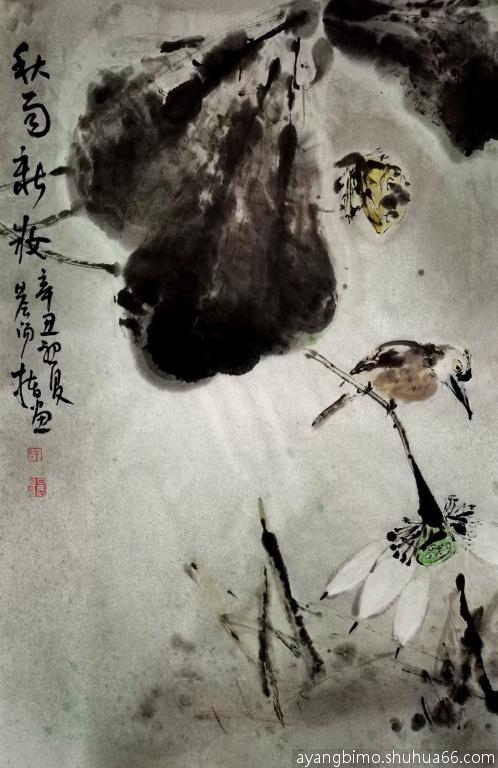 秋雨新妝
辛丑初夏
指画
ayangbimo.shuhua66.com